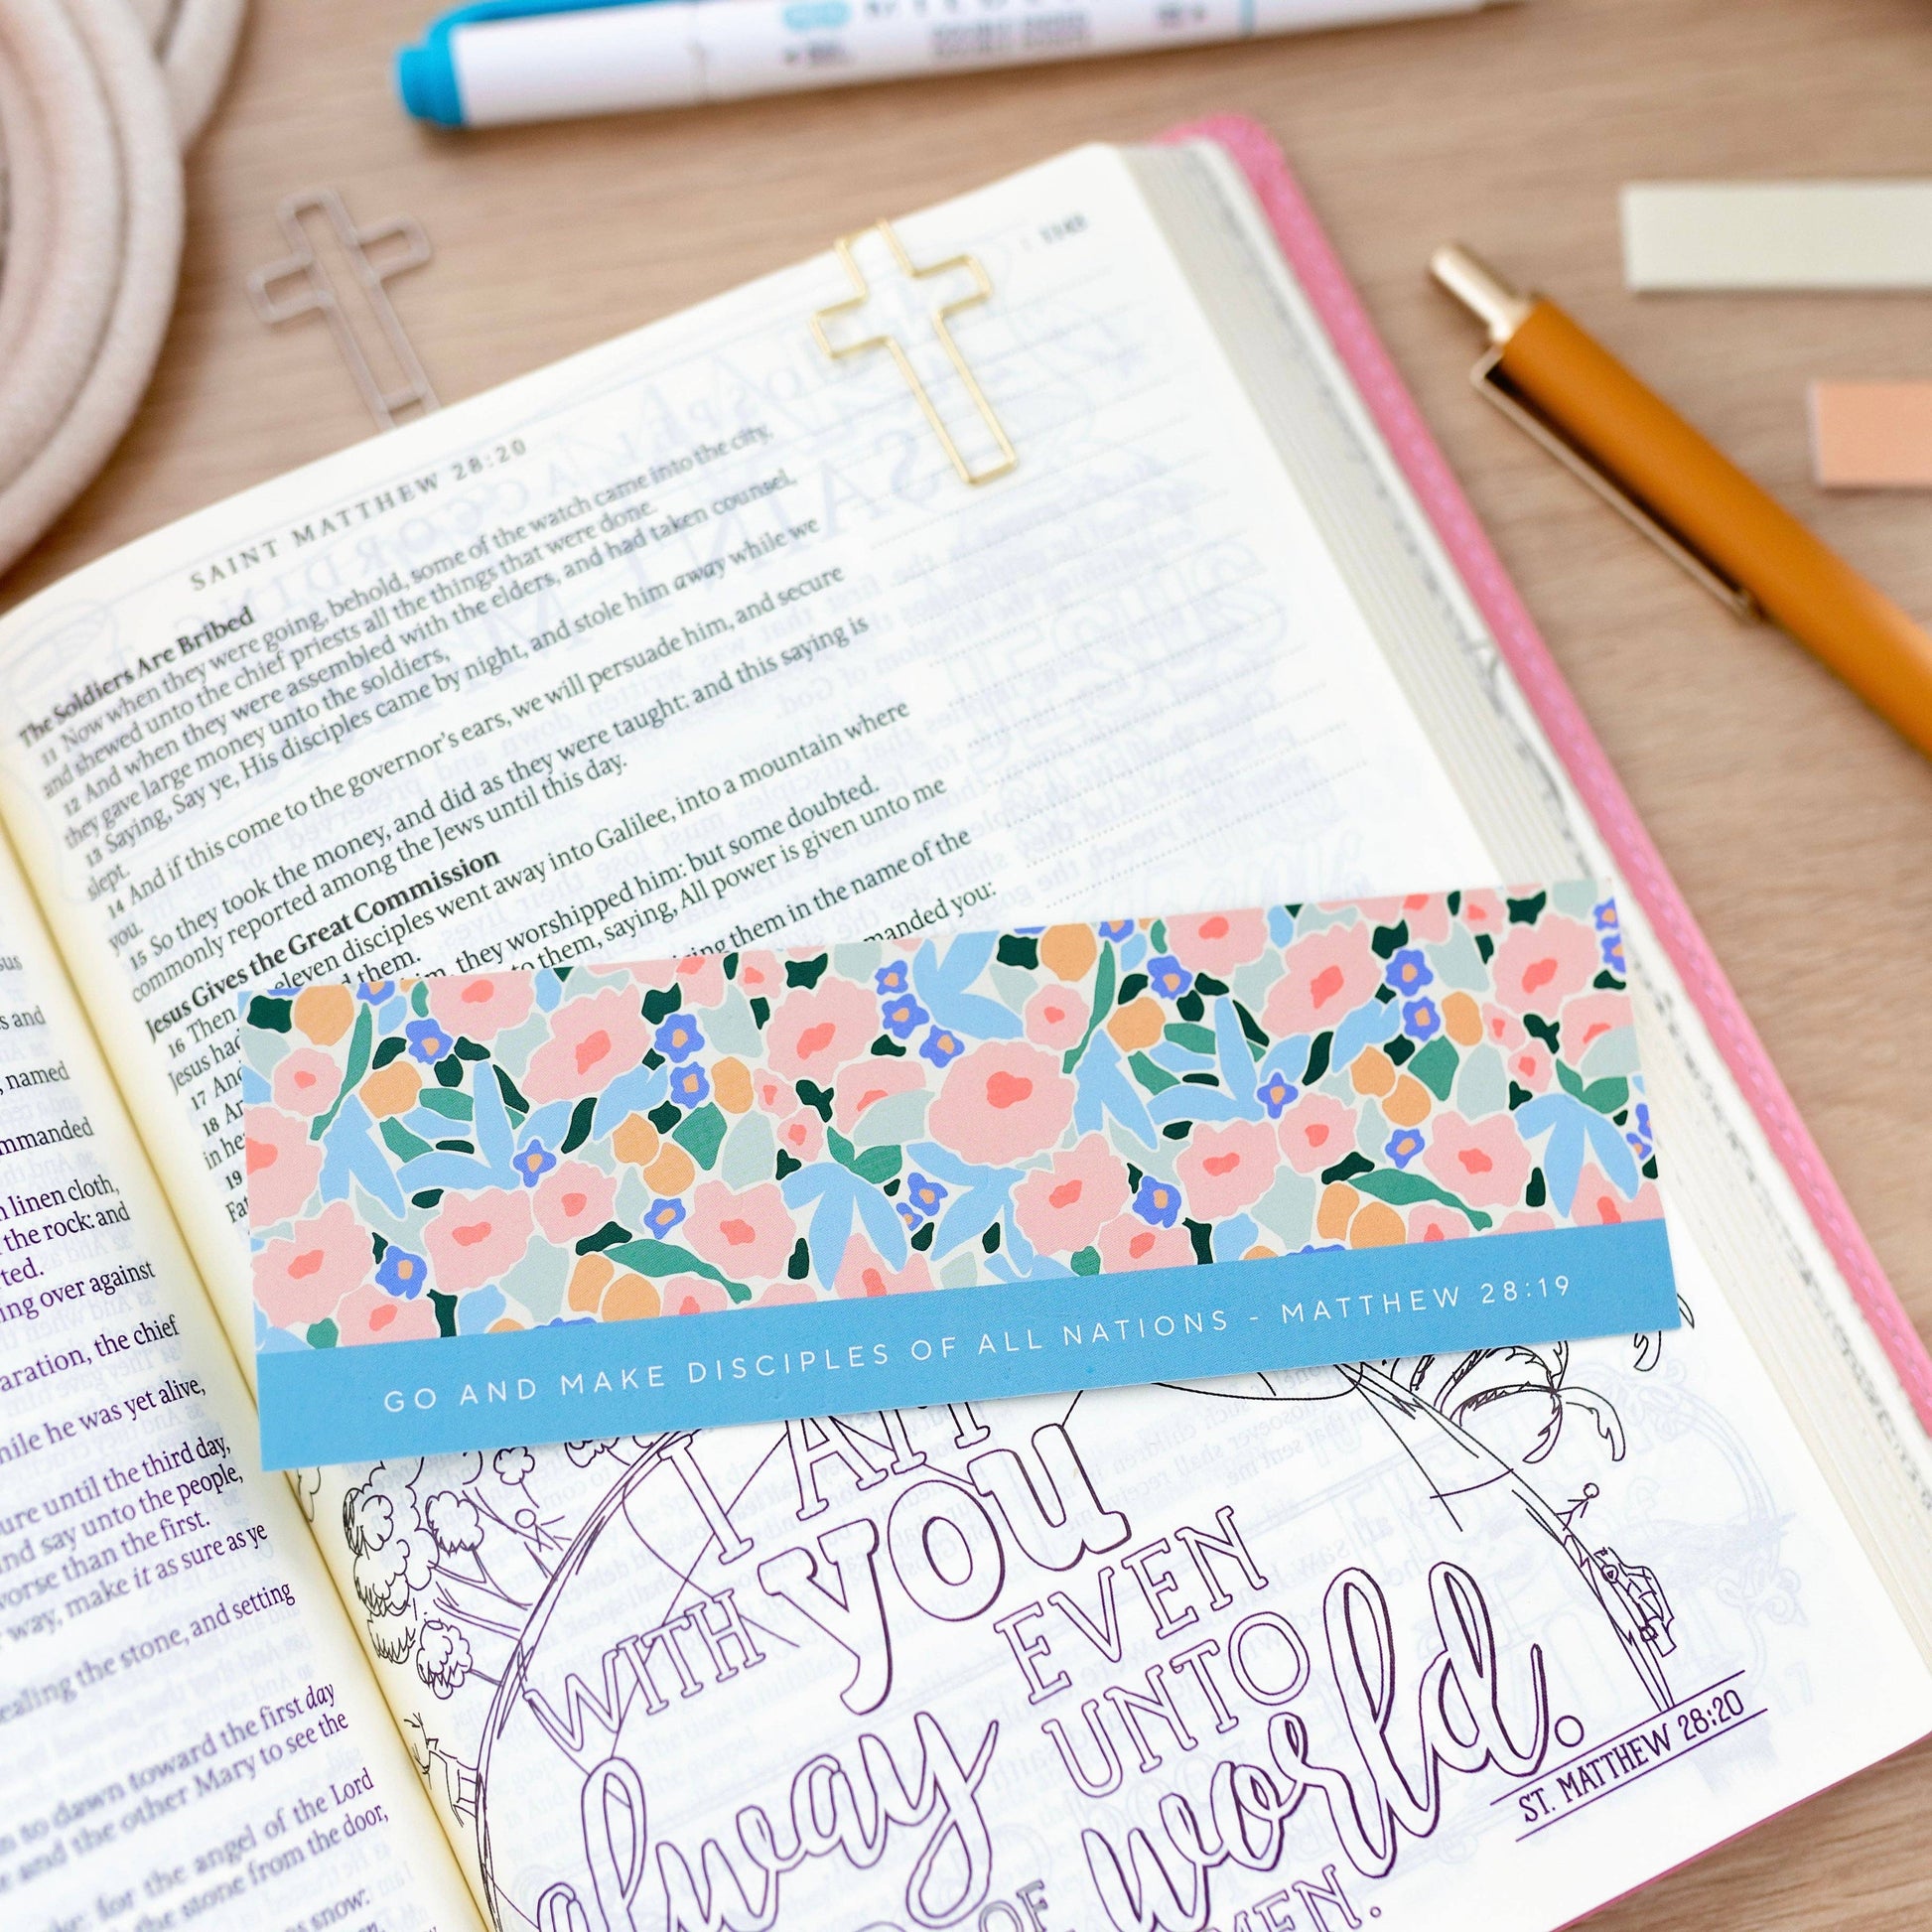 SAINT MATTHEW 28:20
The Soldiers Are Bribed
11 Now when they were going, behold, some of the watch came into the city,
and shewed unto the chief priests all the things that were done.
12 And when they were assembled with the elders, and had taken counsel,
they gave large money unto the soldiers,
13 Saying, Say ye, His disciples came by night, and stole him away while we
slept.
14 And if this come to the governor's ears, we will persuade him, and secure
you.
15 So they took the money, and did as they were taught: and this saying is
commonly reported among the Jews until this day.
Jesus Gives the Great Commission
16 Then eleven disciples went away into Galilee, into a mountain where
Jesus had d them.
17 And im, they worshipped him: but some doubted.
18 to them, saying, All power is given unto me
in he
19 them in the name of the
manded you:
GO AND MAKE DISCIPLES OF ALL NATIONS - MATTHEW 28:19
I AM
WITH you
alway
EVEN
UNTO
world.
OF
MEN.
ST. MATTHEW 28:20
s and
, named
mmanded
linen cloth,
the rock: and
ted.
ing over against
aration, the chief
hile he was yet alive,
ure until the third day,
nd say unto the people,
worse than the first.
way, make it as sure as ye
ealing the stone, and setting
to dawn toward the first day
e and the other Mary to see the
for the angel of the Lord
the stone from the door,
snow: